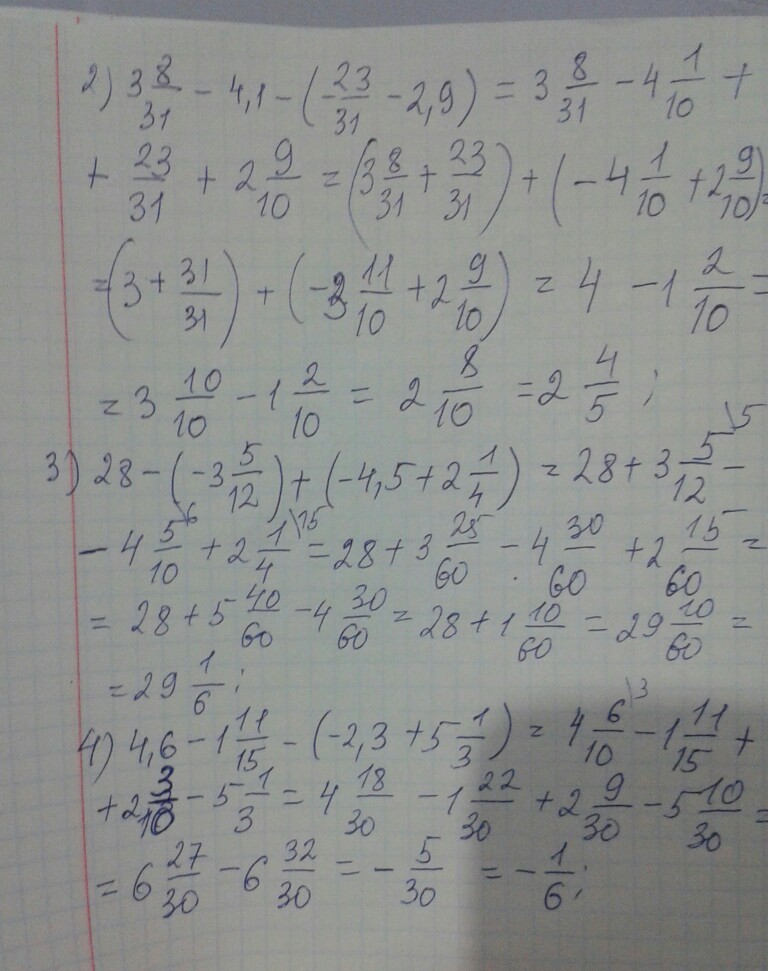 2) 3 8/31 - 4,1 - (-23/31 - 2,9) = 3 8/31 - 4 1/10 +
+ 23/31 + 2 9/10 = (3 8/31 + 23/31) + (-4 1/10 + 2 9/10) =
= (3 + 31/31) + (-3 11/10 + 2 9/10) = 4 - 1 2/10 =
= 3 10/10 - 1 2/10 = 2 8/10 = 2 4/5;
3) 28 - (-3 5/12) + (-4,5 + 2 1/4) = 28 + 3 5/12 \5 -
- 4 5/10 \6 + 2 1/4 \15 = 28 + 3 25/60 - 4 30/60 + 2 15/60 =
= 28 + 5 40/60 - 4 30/60 = 28 + 1 10/60 = 29 10/60 =
= 29 1/6;
4) 4,6 - 1 11/15 - (-2,3 + 5 1/3) = 4 6/10 \3 - 1 11/15 +
+ 2 3/10 - 5 1/3 = 4 18/30 - 1 22/30 + 2 9/30 - 5 10/30 =
= 6 27/30 - 6 32/30 = - 5/30 = - 1/6;